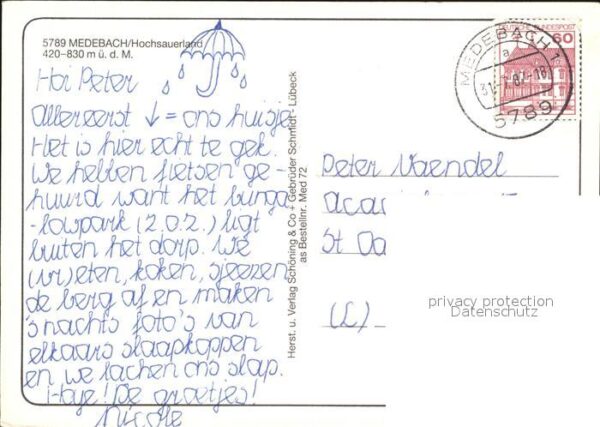 5789 MEDEBACH/Hochsauerland
420-830 m ü. d. M.
Hoi Peter
Allereerst ↓ = ons huisje.
Het is hier echt te gek.
We hebben fietsen ge-
huurd want het bunga
-lowpark (2.0.2.) ligt
buiten het dorp. We
(vr)eten, koken, sjeezen
de berg af en maken
's nachts foto's van
elkaars slaapkoppen
en we lachen ons slap.
Haye! De groetjes!
Nicole
Herst. u. Verlag Schöning & Co + Gebrüder Schmidt · Lübeck
as Bestellnr. Med 72
MEDEBACH 1
a
5789
DEUTSCHE BUNDESPOST
60
Peter Vaendel
St
(L)
privacy protection
Datenschutz